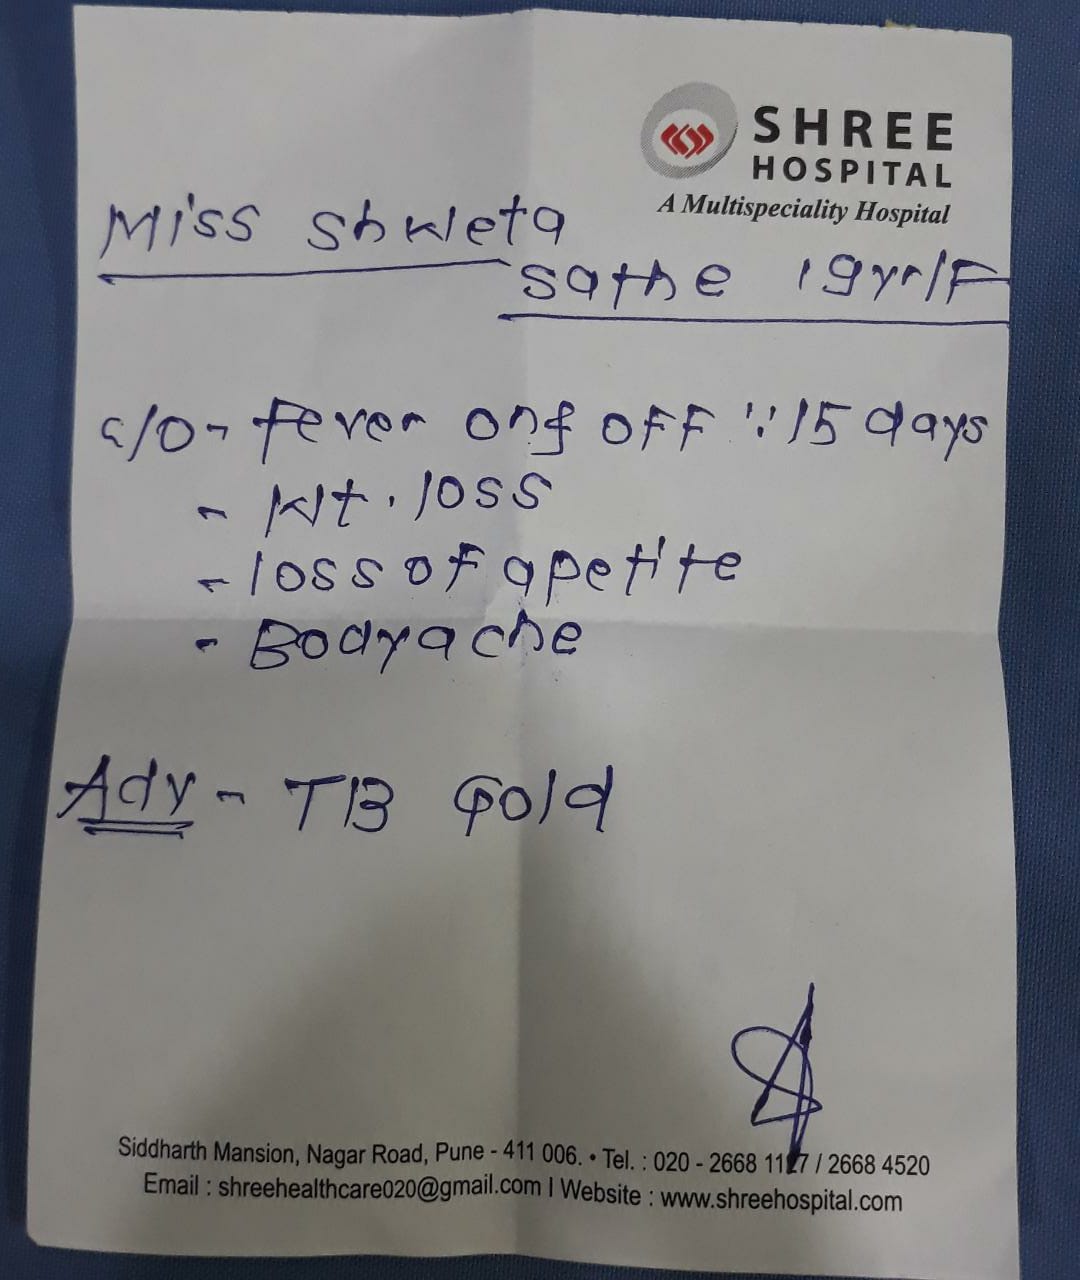 SHREE
HOSPITAL
A Multispeciality Hospital
Miss Shweta
Sathe 19yr/F
c/o - fever on & off ∵ 15 days
- Wt. loss
- loss of apetite
- Bodyache
Adv - TB Gold
Siddharth Mansion, Nagar Road, Pune - 411 006. • Tel. : 020 - 2668 1117 / 2668 4520
Email : shreehealthcare020@gmail.com | Website : www.shreehospital.com